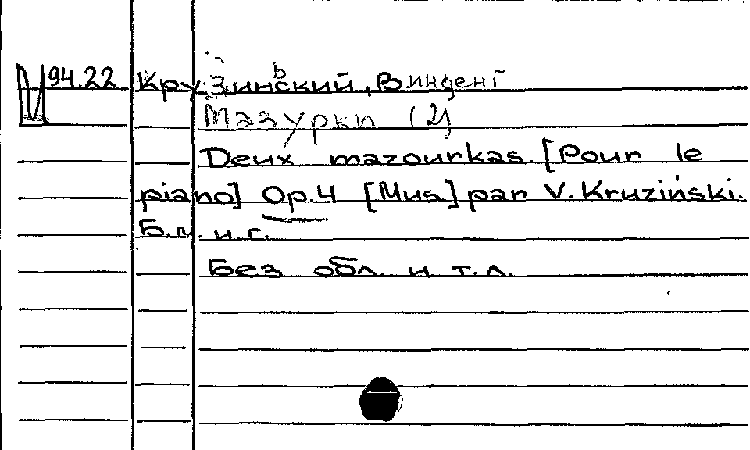 94.22 Крузиньский, Винцент
Мазурки (2)
Deux mazourkas [Pour le
piano] Op.4 [Mus] par V. Kruziński.
Б.м. и г.
Без обл. и т.л.